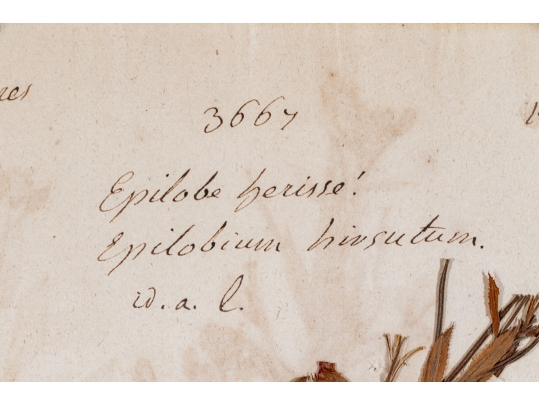 3667
Epilobe herisse!
Epilobium hirsutum.
id. a. l.